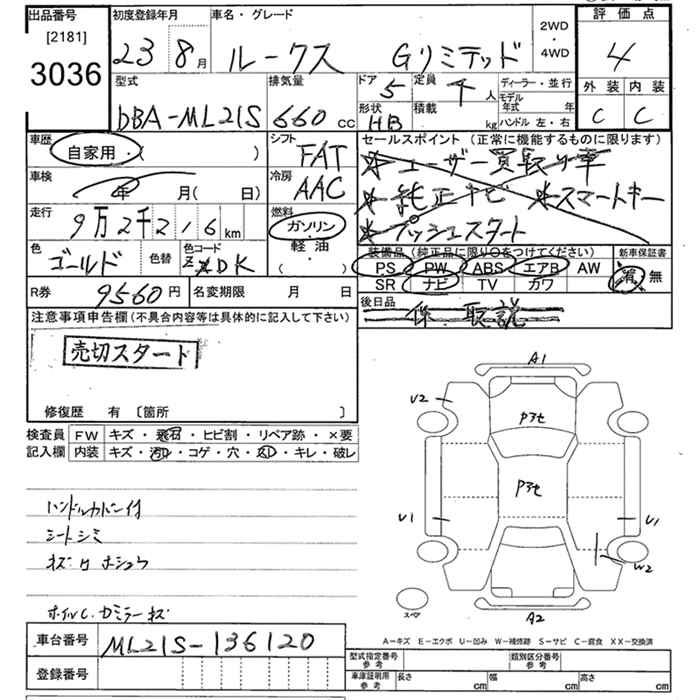 出品番号
[2181]
3036
初度登録年月
23 8月
車名・グレード
ルークス Gリミテッド
2WD
・
4WD
評価点
4
外装 内装
C C
型式
DBA-ML21S
排気量
660 cc
ドア
5
定員
人
形状
HB
積載
kg
ディーラー・並行
モデル年式 年
ハンドル 左・右
車歴
自家用・( )
シフト
FAT
車検
年 月( 日)
冷房
AAC
走行
9万2千2,6 km
燃料
ガソリン
軽油
・( )
色
ゴールド
色替
色コード
DK
セールスポイント (正常に機能するものに限ります)
*ユーザー買取り車
*純正ナビ *スマートキー
*プッシュスタート
装備品 (純正品に限り○をつけてください)
PS PW ABS エアB AW
SR ナビ TV カワ
新車保証書
無
R券
9560 円
名変期限 月 日
後日品
取説
注意事項申告欄 (不具合内容等は具体的に記入して下さい)
売切スタート
修復歴 有 〔箇所 〕
検査員
記入欄
FW キズ・飛石・ヒビ割・リペア跡・×要
内装 キズ・汚れ・コゲ・穴・スレ・キレ・破レ
ハンドルカバー付
シートシミ
キズ ホシュウ
ホイルC.ガミラーキズ
A1
U2
Pアセ
Pアセ
U1
U1
W2
スペア
A2
A-キズ E-エクボ U-凹み W-補修跡 S-サビ C-腐食 XX-交換済
車台番号
ML21S-136120
登録番号
型式指定番号
参考
類別区分番号
参考
車庫証明用
参考
長さ cm 幅 cm 高さ cm